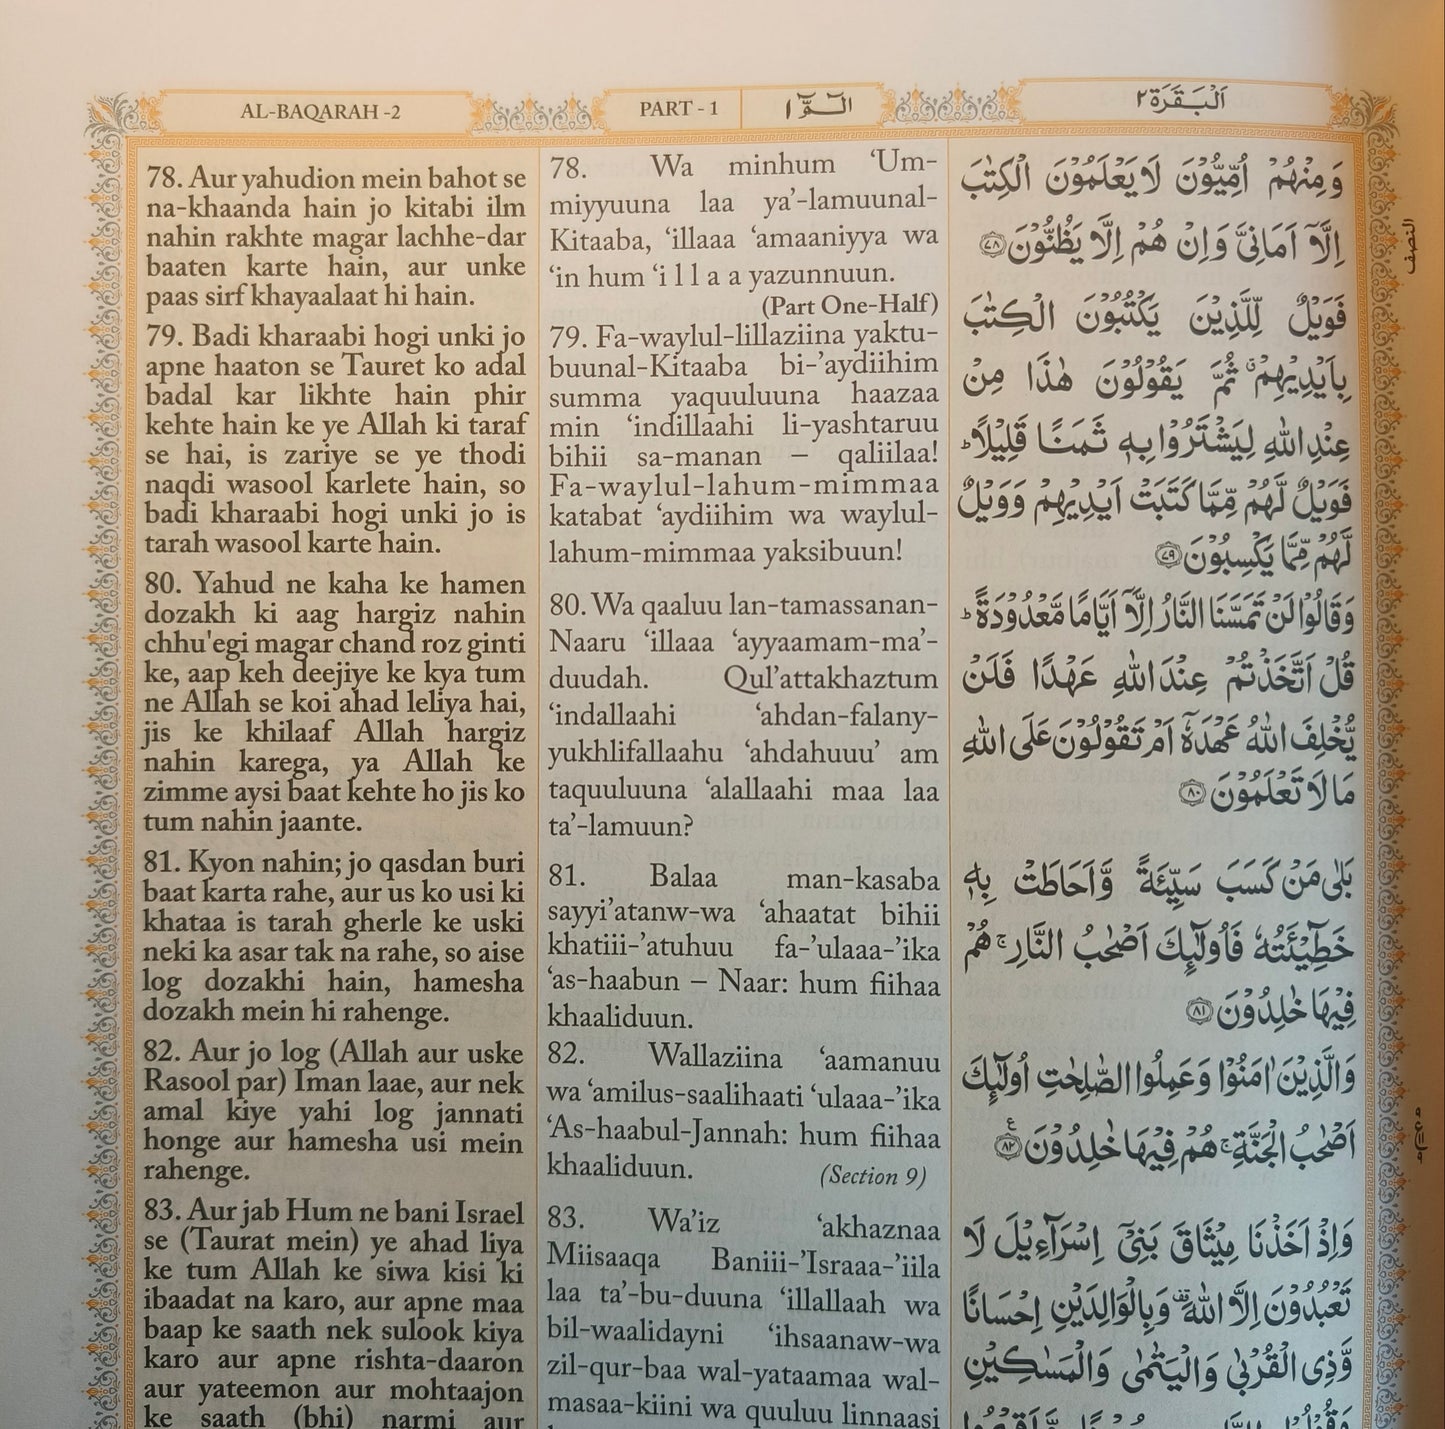 AL-BAQARAH -2
PART - 1
الٓـمّٓ ١
اَلْبَقَرَة ٢
78. Aur yahudion mein bahot se
na-khaanda hain jo kitabi ilm
nahin rakhte magar lachhe-dar
baaten karte hain, aur unke
paas sirf khayaalaat hi hain.
79. Badi kharaabi hogi unki jo
apne haaton se Tauret ko adal
badal kar likhte hain phir
kehte hain ke ye Allah ki taraf
se hai, is zariye se ye thodi
naqdi wasool karlete hain, so
badi kharaabi hogi unki jo is
tarah wasool karte hain.
80. Yahud ne kaha ke hamen
dozakh ki aag hargiz nahin
chhu'egi magar chand roz ginti
ke, aap keh deejiye ke kya tum
ne Allah se koi ahad leliya hai,
jis ke khilaaf Allah hargiz
nahin karega, ya Allah ke
zimme aysi baat kehte ho jis ko
tum nahin jaante.
81. Kyon nahin; jo qasdan buri
baat karta rahe, aur us ko usi ki
khataa is tarah gherle ke uski
neki ka asar tak na rahe, so aise
log dozakhi hain, hamesha
dozakh mein hi rahenge.
82. Aur jo log (Allah aur uske
Rasool par) Iman laae, aur nek
amal kiye yahi log jannati
honge aur hamesha usi mein
rahenge.
83. Aur jab Hum ne bani Israel
se (Taurat mein) ye ahad liya
ke tum Allah ke siwa kisi ki
ibaadat na karo, aur apne maa
baap ke saath nek sulook kiya
karo aur apne rishta-daaron
aur yateemon aur mohtaajon
ke saath (bhi) narmi aur
78. Wa minhum ‘Um-
miyyuuna laa ya’-lamuunal-
Kitaaba, ‘illaaa ‘amaaniyya wa
‘in hum ‘i l l a a yazunnuun.
(Part One-Half)
79. Fa-waylul-lillaziina yaktu-
buunal-Kitaaba bi-’aydiihim
summa yaquuluuna haazaa
min ‘indillaahi li-yashtaruu
bihii sa-manan – qaliilaa!
Fa-waylul-lahum-mimmaa
katabat ‘aydiihim wa waylul-
lahum-mimmaa yaksibuun!
80. Wa qaaluu lan-tamassanan-
Naaru ‘illaaa ‘ayyaamam-ma’-
duudah. Qul’attakhaztum
‘indallaahi ‘ahdan-falany-
yukhlifallaahu ‘ahdahuuu’ am
taquuluuna ‘alallaahi maa laa
ta’-lamuun?
81. Balaa man-kasaba
sayyi’atanw-wa ‘ahaatat bihii
khatiii-’atuhuu fa-’ulaaa-’ika
‘as-haabun – Naar: hum fiihaa
khaaliduun.
82. Wallaziina ‘aamanuu
wa ‘amilus-saalihaati ‘ulaaa-’ika
‘As-haabul-Jannah: hum fiihaa
khaaliduun.
(Section 9)
83. Wa’iz ‘akhaznaa
Miisaaqa Baniii-’Israaa-’iila
laa ta’-bu-duuna ‘illallaah wa
bil-waalidayni ‘ihsaanaw-wa
zil-qur-baa wal-yataamaa wal-
masaa-kiini wa quuluu linnaasi
وَمِنْهُمْ اُمِّيُّوْنَ لَا يَعْلَمُوْنَ الْكِتٰبَ
اِلَّاۤ اَمَانِيَّ وَاِنْ هُمْ اِلَّا يَظُنُّوْنَ ﴿٧٨﴾
فَوَيْلٌ لِّلَّذِيْنَ يَكْتُبُوْنَ الْكِتٰبَ
بِاَيْدِيْهِمْ ۗ ثُمَّ يَقُوْلُوْنَ هٰذَا مِنْ
عِنْدِ اللّٰهِ لِيَشْتَرُوْا بِهٖ ثَمَنًا قَلِيْلًا ؕ
فَوَيْلٌ لَّهُمْ مِّمَّا كَتَبَتْ اَيْدِيْهِمْ وَوَيْلٌ
لَّهُمْ مِّمَّا يَكْسِبُوْنَ ﴿٧٩﴾
وَقَالُوْا لَنْ تَمَسَّنَا النَّارُ اِلَّاۤ اَيَّامًا مَّعْدُوْدَةً ؕ
قُلْ اَتَّخَذْتُمْ عِنْدَ اللّٰهِ عَهْدًا فَلَنْ
يُّخْلِفَ اللّٰهُ عَهْدَهٗۤ اَمْ تَقُوْلُوْنَ عَلَى اللّٰهِ
مَا لَا تَعْلَمُوْنَ ﴿٨٠﴾
بَلٰى مَنْ كَسَبَ سَيِّئَةً وَّاَحَاطَتْ بِهٖ
خَطِيْٓئَتُهٗ فَاُولٰٓئِكَ اَصْحٰبُ النَّارِ ۚ هُمْ
فِيْهَا خٰلِدُوْنَ ﴿٨١﴾
وَالَّذِيْنَ اٰمَنُوْا وَعَمِلُوا الصّٰلِحٰتِ اُولٰٓئِكَ
اَصْحٰبُ الْجَنَّةِ ۚ هُمْ فِيْهَا خٰلِدُوْنَ ﴿٨٢﴾ ع
وَاِذْ اَخَذْنَا مِيْثَاقَ بَنِيْۤ اِسْرَآءِيْلَ لَا
تَعْبُدُوْنَ اِلَّا اللّٰهَ ۫ وَبِالْوَالِدَيْنِ اِحْسَانًا
وَّذِي الْقُرْبٰى وَالْيَتٰمٰى وَالْمَسٰكِيْنِ
النصف